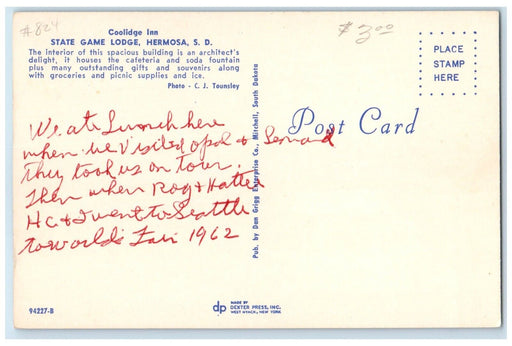 #824
$3.00
Coolidge Inn
STATE GAME LODGE, HERMOSA, S. D.
The interior of this spacious building is an architect's
delight, it houses the cafeteria and soda fountain
plus many outstanding gifts and souvenirs along
with groceries and picnic supplies and ice.
Photo - C. J. Tounsley
PLACE
STAMP
HERE
Post Card
We ate Lunch here
when we Visited Opal +
They took us on Tour.
Then when Roy + Hattie
HC + I went to Seattle
to worlds Fair 1962
Pub. by Dan Grigg Enterprise Co., Mitchell, South Dakota
94227-B
dp
MADE BY
DEXTER PRESS, INC.
WEST NYACK, NEW YORK